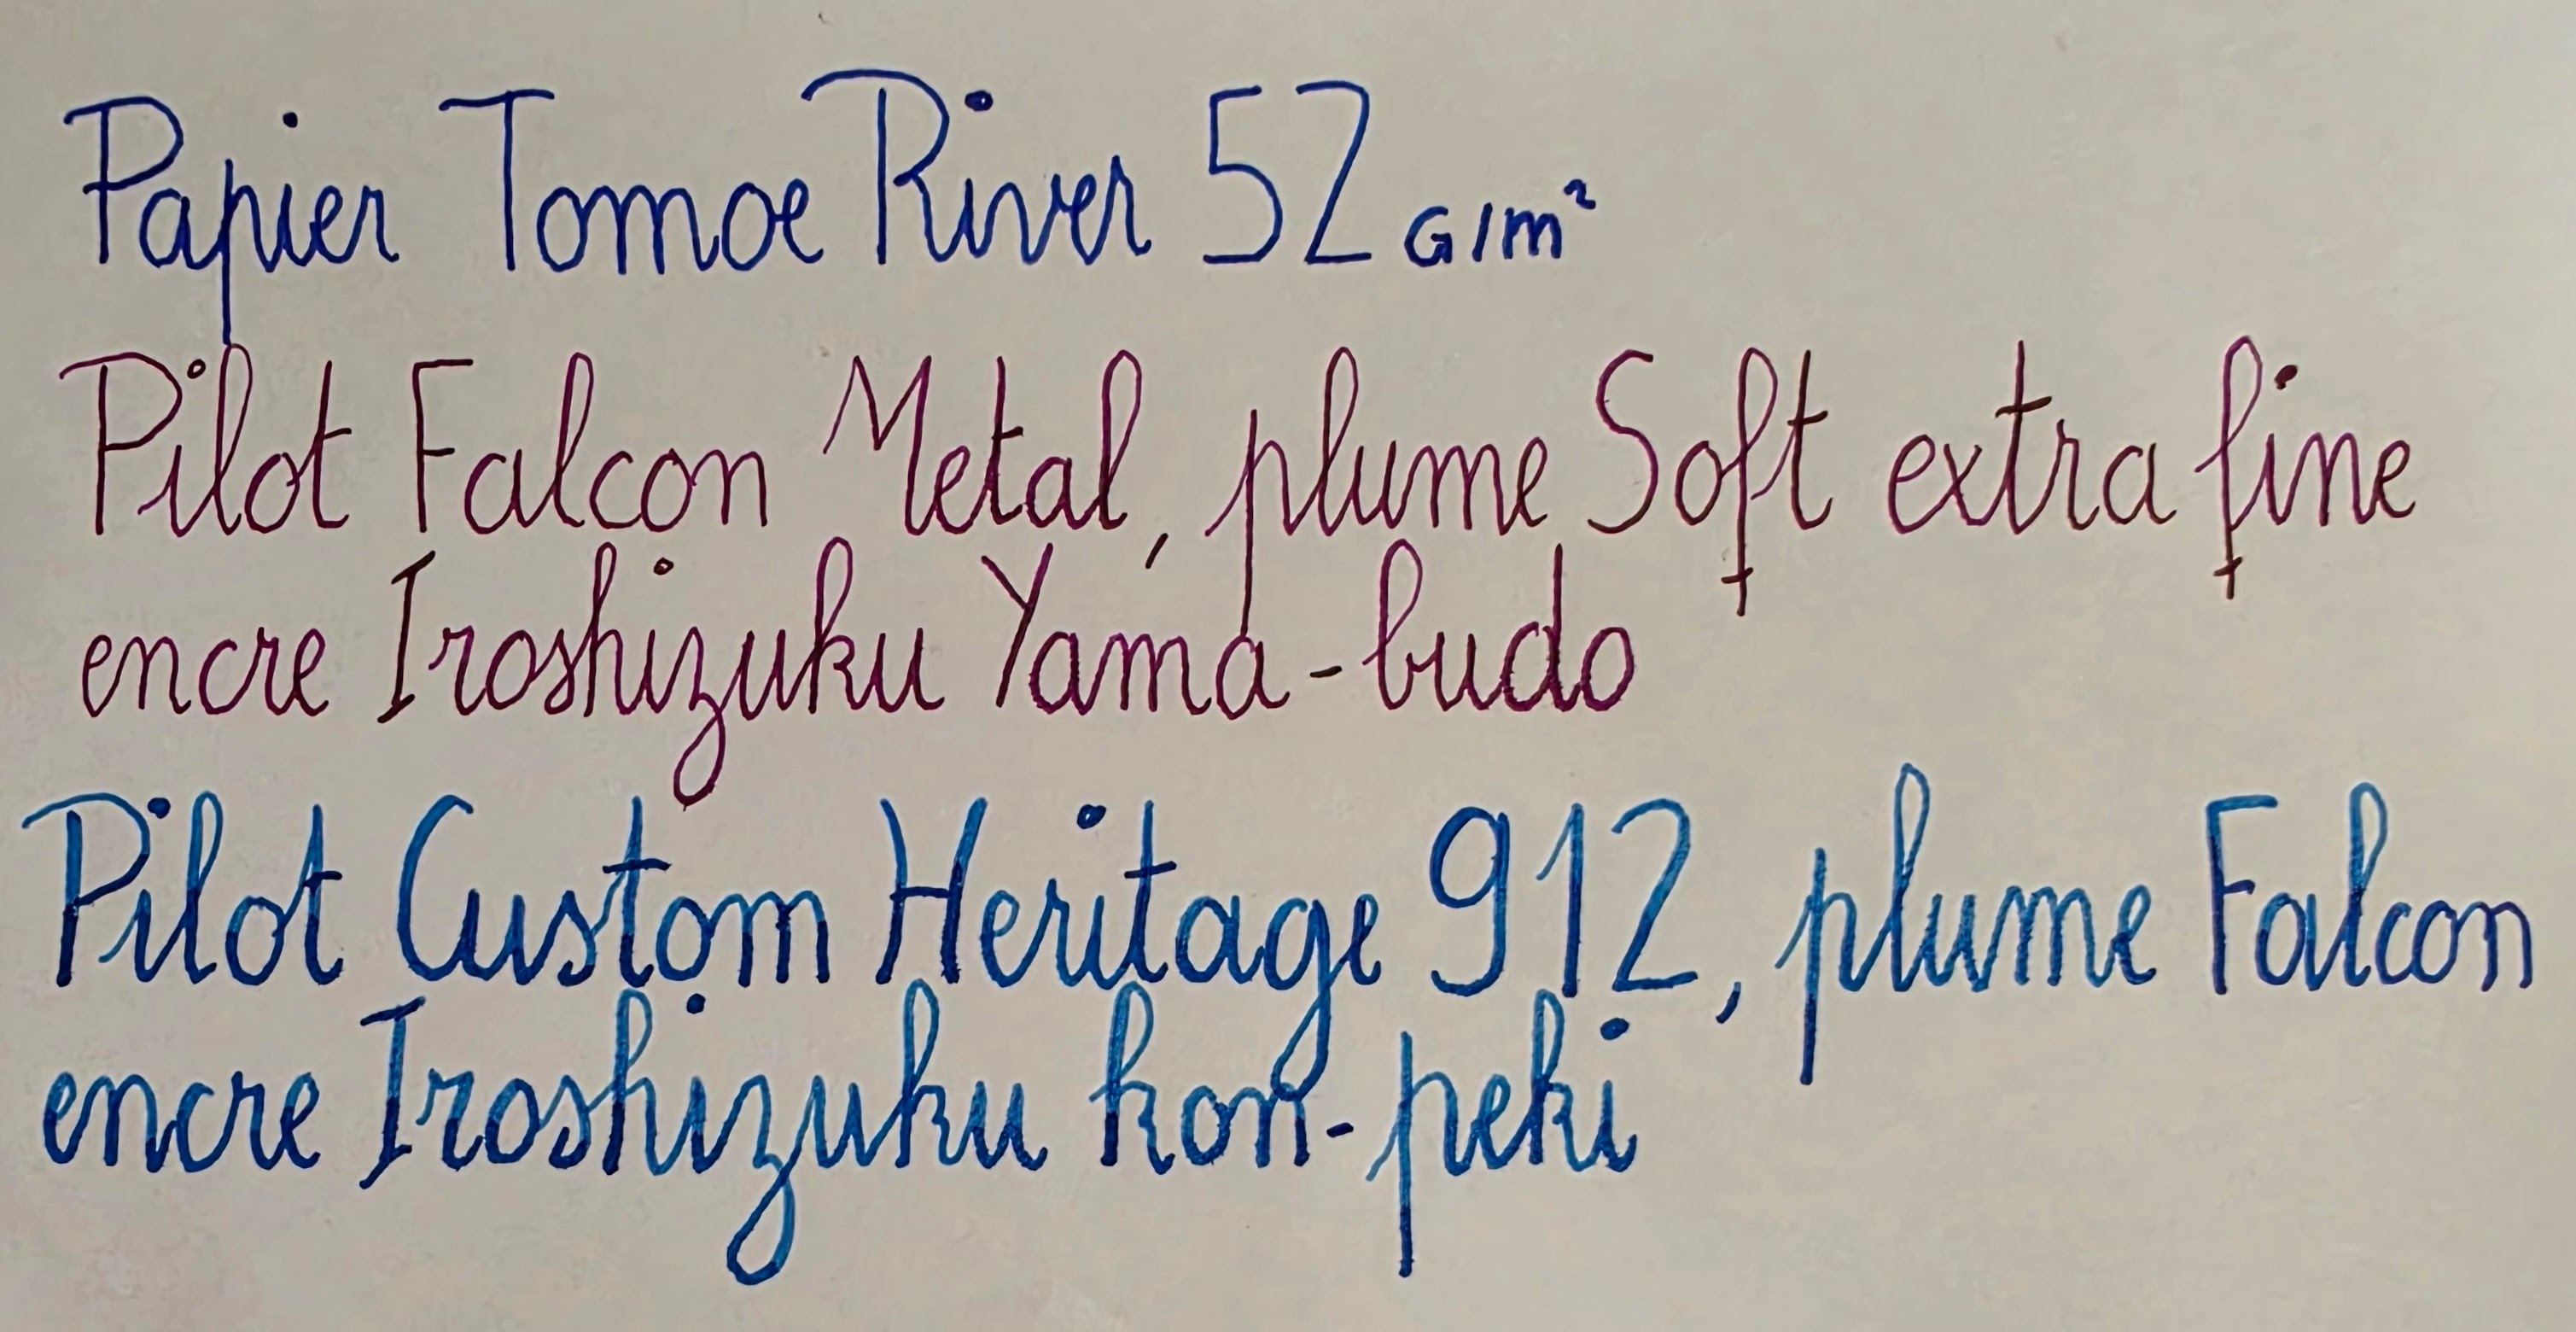 Papier Tomoe River 52 G/m²
Pilot Falcon Metal, plume Soft extra fine
encre Iroshizuku Yama-budo
Pilot Custom Heritage 912, plume Falcon
encre Iroshizuku kon-peki